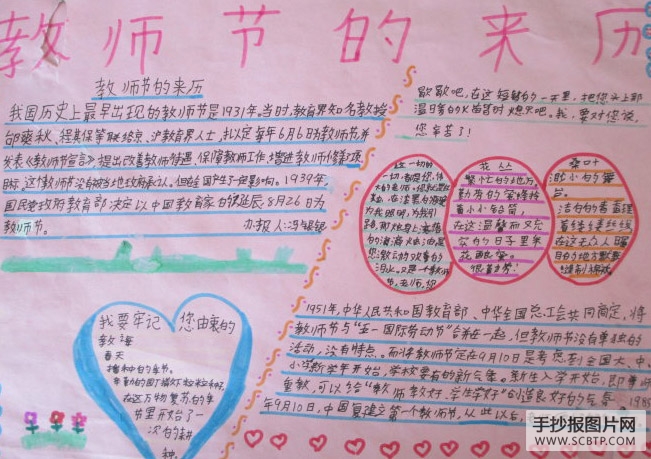 教师节的来历
教师节的来历
我国历史上最早出现的教师节是1931年。当时,教育界知名教授
邰爽秋、程其保等联络京、沪教育界人士,拟定每年6月6日为教师节,并
发表《教师节宣言》,提出改善教师待遇,保障教师工作,增进教师修养3项
目标,这个教师节没有被当地政府承认,但在全国产生了一定影响。1939年,
国民党政府教育部决定以中国教育家的诞辰,8月26日为
教师节。
办报人:冯
歇歇吧,在这短暂的一天里,把您头上那
温暖的火苗暂时熄灭吧。我,要对您说,
您辛苦了!
这一切的
一切,都是您,伟
为我们引
花丛
繁忙的地方,
勤劳的蜜蜂格
着小小
在这温馨而又
的日子里采
花酿蜜。
很苦
桑叶
渺小的舞
台。
洁白的春蚕
着
在这无人
目的地方默默
我要牢记
您由衷的
教诲
春天
播种的季节。
在这万物复苏的季
节里开始了一
次的耕
种。
1951年,中华人民共和国教育部、中华全国总工会共同商定,将
教师节与“五一国际劳动节”合并在一起,但教师节没有单独的
活动,没有特点。而将教师节定在9月10日是考虑到全国大、中、
小学新学年开始,学校要有新气象。新生入学开始,即尊师
重教,可以给“教师教好、学生学好”创造良好的气氛。1985
年9月10日,中国复建立第一个教师节,从此以后,
手抄报图片网
WWW.SCBTP.COM